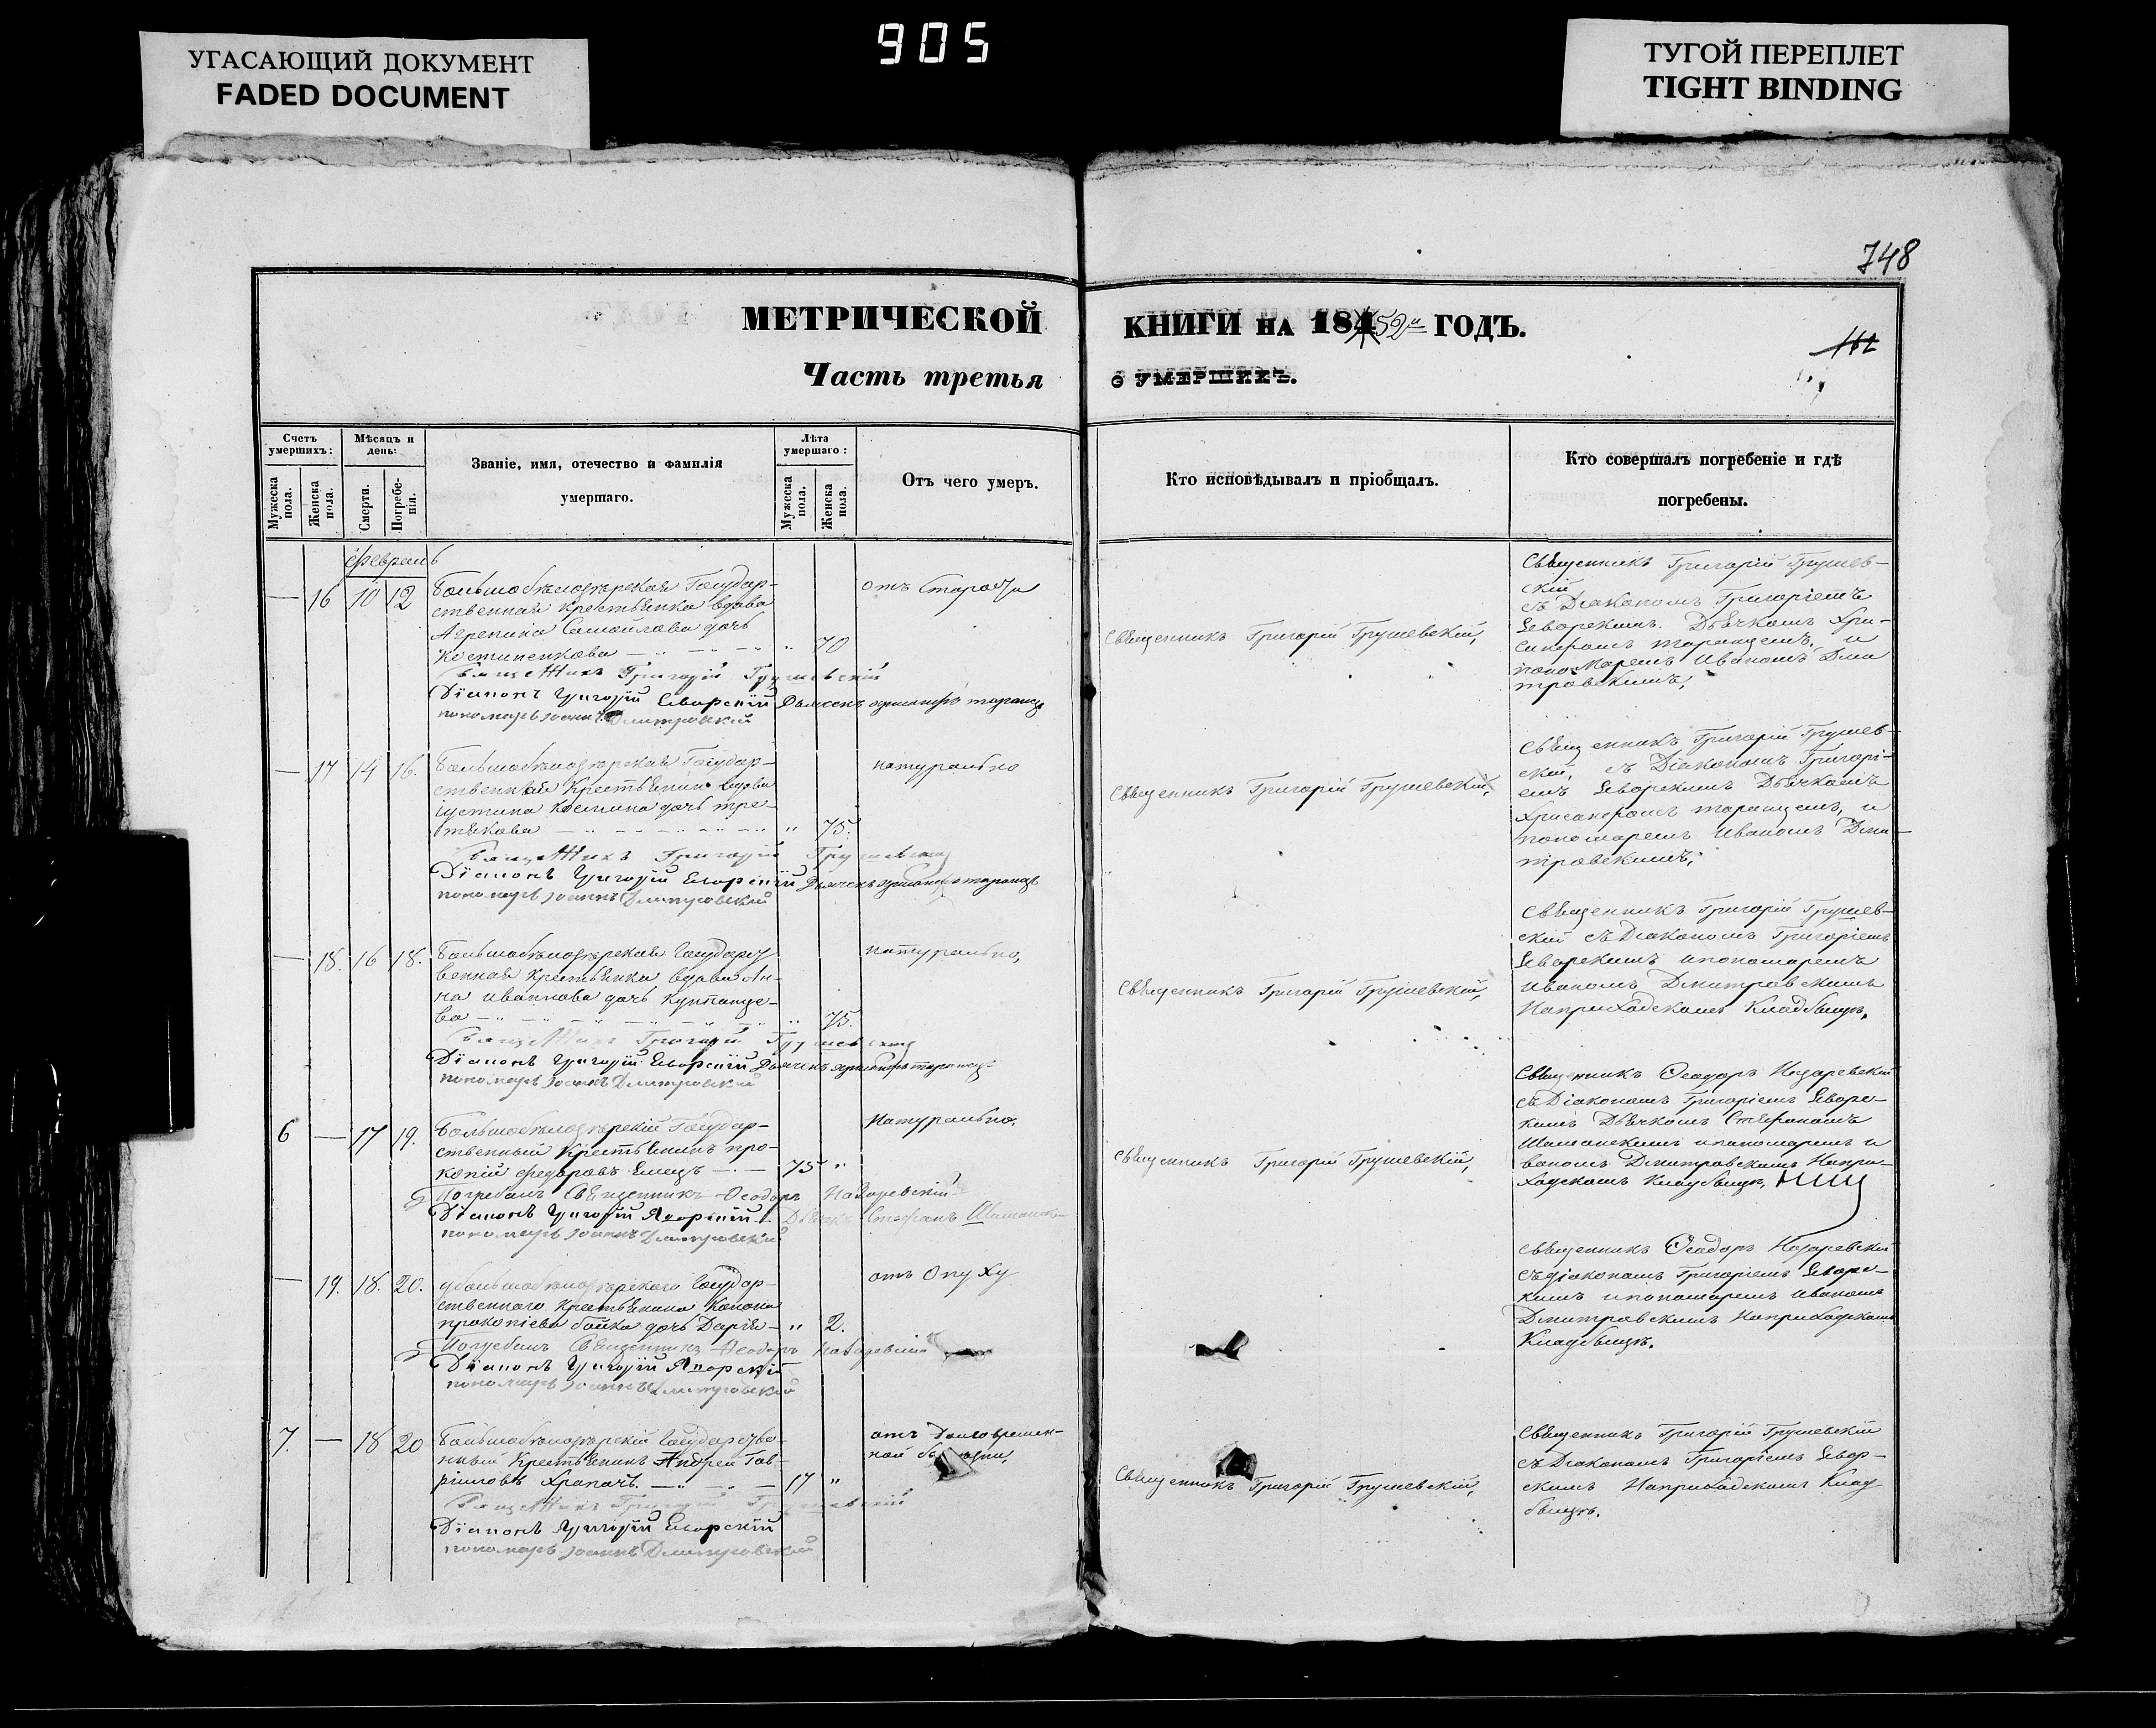 905
УГАСАЮЩИЙ ДОКУМЕНТ
FADED DOCUMENT
ТУГОЙ ПЕРЕПЛЕТ
TIGHT BINDING
748
МЕТРИЧЕСКОЙ КНИГИ НА 1852 ГОДЪ.
Часть третья о УМЕРШИХЪ.
Счетъ умершихъ:
Мужеска пола.
Женска пола.
Мѣсяцъ и день:
Смерти.
Погребенія.
Званіе, имя, отечество и фамилія
умершаго.
Лѣта умершаго:
Мужеска пола.
Женска пола.
Отъ чего умеръ.
Кто исповѣдывалъ и пріобщалъ.
Кто совершалъ погребеніе и гдѣ
погребены.
Февраль
— 16 10 12
Большобѣлозѣрская Государ-
ственная крестьянка вдова
Агрепина Самойлова дочь
" 70
отъ Старости
Священникъ Григорій Грушевскій
Діаконъ Григорій Еворскій Дьячекъ
пономарь Іоаннъ Дмитровскій
Священникъ Григорій Грушевскій,
Священникъ Григорій Грушев-
скій
съ Діакономъ Григоріемъ
Еворскимъ. Дьячкомъ Хри-
и
пономаремъ Иваномъ Дми
тровскимъ,
— 17 14 16.
Большобѣлозѣрская Государ-
ственная Крестьянка вдова
Іустина Космина дочь Тре-
тякова
" 75.
натурально
Священникъ Григорій Грушевскій
Діаконъ Григорій Еворскій Дьячекъ
пономарь Іоаннъ Дмитровскій
Священникъ Григорій Грушевскій,
Священникъ Григорій Грушев-
скій, съ Діакономъ Григорі-
емъ Еворскимъ Дьячкомъ
и
пономаремъ Иваномъ Дми-
тровскимъ,
— 18. 16 18.
Большобѣлозѣрская Государст
венная Крестьянка вдова Ан-
на Иваннова дочь
ва
" 75.
натурально,
Священникъ Григорій Грушевскій
Діаконъ Григорій Еворскій Дьячекъ
пономарь Іоаннъ Дмитровскій
Священникъ Григорій Грушевскій,
Священникъ Григорій Грушев-
скій съ Діакономъ Григоріемъ
Еворскимъ и пономаремъ
Иваномъ Дмитровскимъ
На приходскомъ Кладбыщѣ.
6 — 17 19.
Большобѣлозѣрскій Государ-
ственный Крестьянинъ Про-
копій Федоровъ Емецъ
75 "
Натурально.
Погребалъ Священникъ Ѳеодоръ Назаревскій
Діаконъ Григорій Яворскій Дьячекъ Стефанъ
пономарь Іоаннъ Дмитровскій
Священникъ Григорій Грушевскій,
Священникъ Ѳеодоръ Назаревскій
съ Діакономъ Григоріемъ Еворс-
кимъ Дьячкомъ Стефаномъ
и пономаремъ И
ваномъ Дмитровскимъ На при-
ходскомъ Кладбыщѣ,
— 19. 18. 20.
Большобѣлозѣрского Государ-
ственного Крестьянина Конона
Прокопіева Бойка дочь Дарія
" 2.
отъ Опуху
Погребалъ Священникъ Ѳеодоръ Назаревскій
Діаконъ Григорій Яворскій
пономарь Іоаннъ Дмитровскій
Священникъ Ѳеодоръ Назаревскій
съ діакономъ Григоріемъ Еворс-
кимъ и пономаремъ Иваномъ
Дмитровскимъ На приходскомъ
Кладбыщѣ.
7. — 18 20
Большобѣлозѣрскій Государстве
нный Крестьянинъ Андрей Гав-
ріиловъ Храпачъ.
17 "
отъ Долговремен-
ной болѣзни,
Священникъ Григорій Грушевскій
Діаконъ Григорій Еворскій
пономарь Іоаннъ Дмитровскій
Священникъ Григорій Грушевскій,
Священникъ Григорій Грушевскій
съ Діакономъ Григоріемъ Евор-
скимъ На приходскомъ Клад
быщѣ.